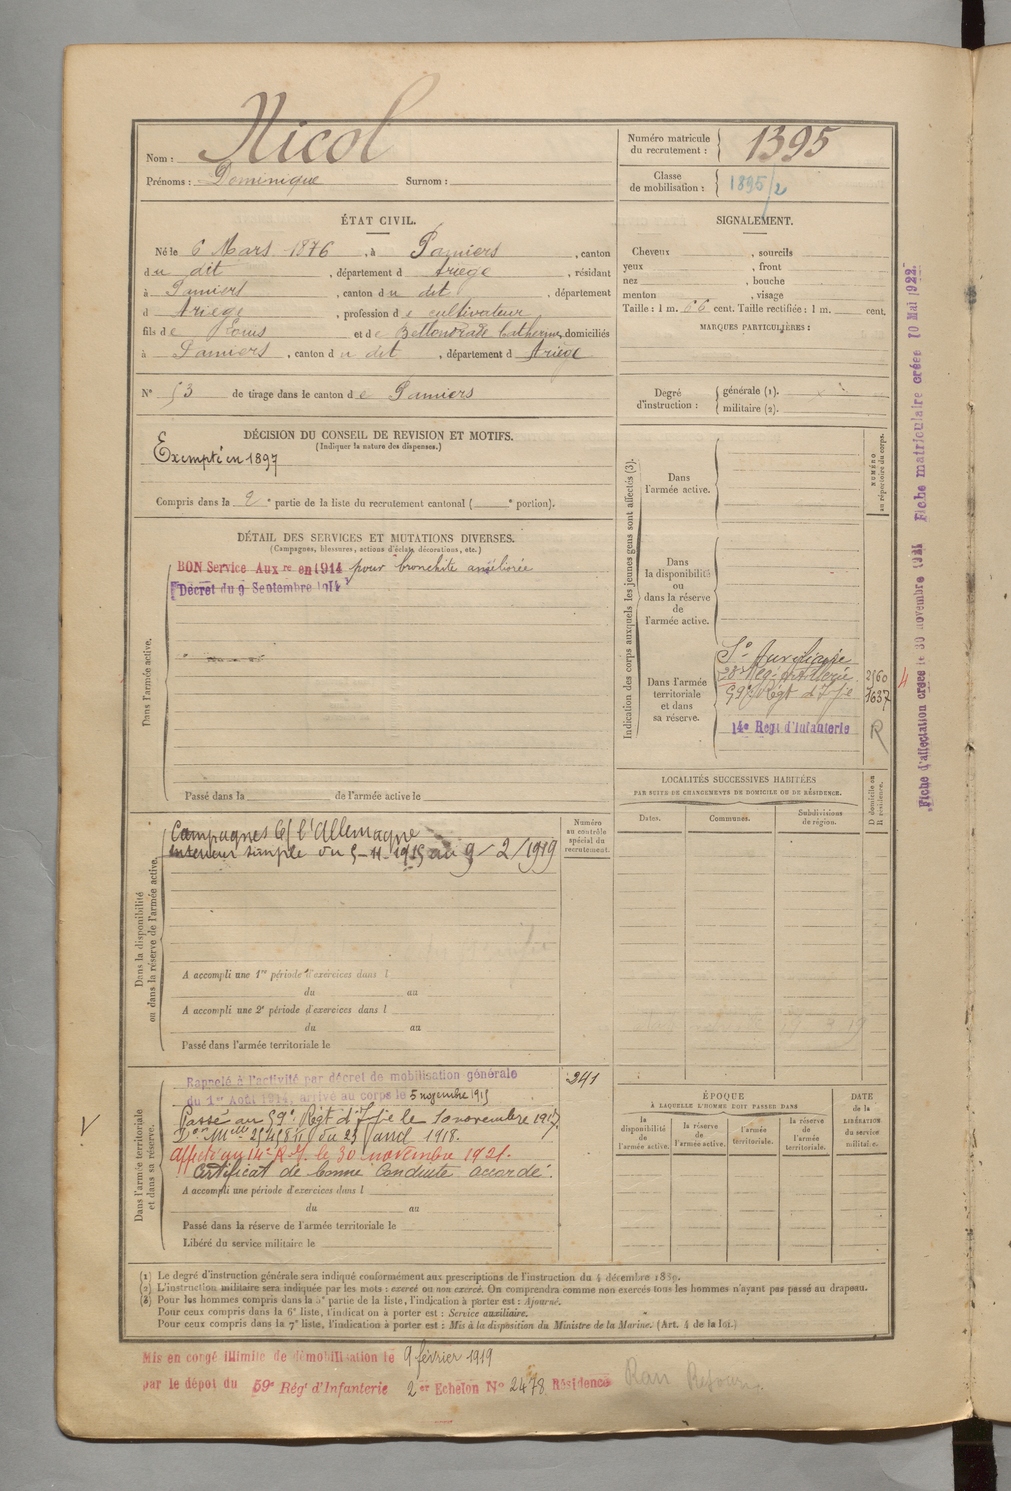 Nom : Nicol
Prénoms : Dominique Surnom :
Numéro matricule du recrutement : 1395
Classe de mobilisation : 1895/2
ÉTAT CIVIL.
Né le 6 Mars 1876, à Pamiers, canton
du dit, département d Ariège, résidant
à Pamiers, canton du dit, département
d Ariège, profession de cultivateur
fils de Louis et de Catherine, domiciliés
à Pamiers, canton du dit, département d Ariège
N° 53 de tirage dans le canton de Pamiers
SIGNALEMENT.
Cheveux , sourcils
yeux , front
nez , bouche
menton , visage
Taille : 1 m. 66 cent. Taille rectifiée : 1 m. cent.
MARQUES PARTICULIÈRES :
Degré d'instruction : générale (1).
militaire (2).
DÉCISION DU CONSEIL DE REVISION ET MOTIFS.
(Indiquer la nature des dispenses.)
Exempté en 1897
Compris dans la 2e partie de la liste du recrutement cantonal ( e portion).
DÉTAIL DES SERVICES ET MUTATIONS DIVERSES.
(Campagnes, blessures, actions d'éclat, décorations, etc.)
BON Service Aux re en 1914 pour bronchite améliorée
Décret du 9 Septembre 1914
Dans l'armée active.
Passé dans la de l'armée active le
Indication des corps auxquels les jeunes gens sont affectés (3).
NUMÉRO au répertoire du corps.
Dans l'armée active.
Dans la disponibilité ou dans la réserve de l'armée active.
Dans l'armée territoriale et dans sa réserve.
Sce Auxiliaire
59e Régt d'Infie 7637
14e Régt d'Infanterie R
Fiche d'affectation créée le 30 novembre 1921 Fiche matriculaire créée 10 Mai 1922
LOCALITÉS SUCCESSIVES HABITÉES
PAR SUITE DE CHANGEMENTS DE DOMICILE OU DE RÉSIDENCE.
D domicile ou R résidence.
Dates. Communes. Subdivisions de région.
Dans la disponibilité ou dans la réserve de l'armée active.
Numéro au contrôle spécial du recrutement.
Campagnes C/ l'Allemagne
Intérieur simple du 5-11-1915 au 9/2/1919
A accompli une 1re période d'exercices dans l
du au
A accompli une 2e période d'exercices dans l
du au
Passé dans l'armée territoriale le
Dans l'armée territoriale et dans sa réserve.
Rappelé à l'activité par décret de mobilisation générale 341
du 1er Août 1914, arrivé au corps le 5 novembre 1915
Passé au 59e Régt d'Infie le 10 novembre 1917
Affecté au 14e R.I. le 30 novembre 1921.
Certificat de bonne conduite accordé.
A accompli une période d'exercices dans l
du au
Passé dans la réserve de l'armée territoriale le
Libéré du service militaire le
ÉPOQUE
À LAQUELLE L'HOMME DOIT PASSER DANS
la disponibilité de l'armée active.
la réserve de l'armée active.
l'armée territoriale.
la réserve de l'armée territoriale.
DATE de la LIBÉRATION du service militaire.
(1) Le degré d'instruction générale sera indiqué conformément aux prescriptions de l'instruction du 4 décembre 1889.
(2) L'instruction militaire sera indiquée par les mots : exercé ou non exercé. On comprendra comme non exercés tous les hommes n'ayant pas passé au drapeau.
(3) Pour les hommes compris dans la 5e partie de la liste, l'indication à porter est : Ajourné.
Pour ceux compris dans la 6e liste, l'indication à porter est : Service auxiliaire.
Pour ceux compris dans la 7e liste, l'indication à porter est : Mis à la disposition du Ministre de la Marine. (Art. 4 de la loi.)
Mis en congé illimité de démobilisation le 9 février 1919
par le dépôt du 59e Régt d'Infanterie 2er Echelon N° 2478 Résidence